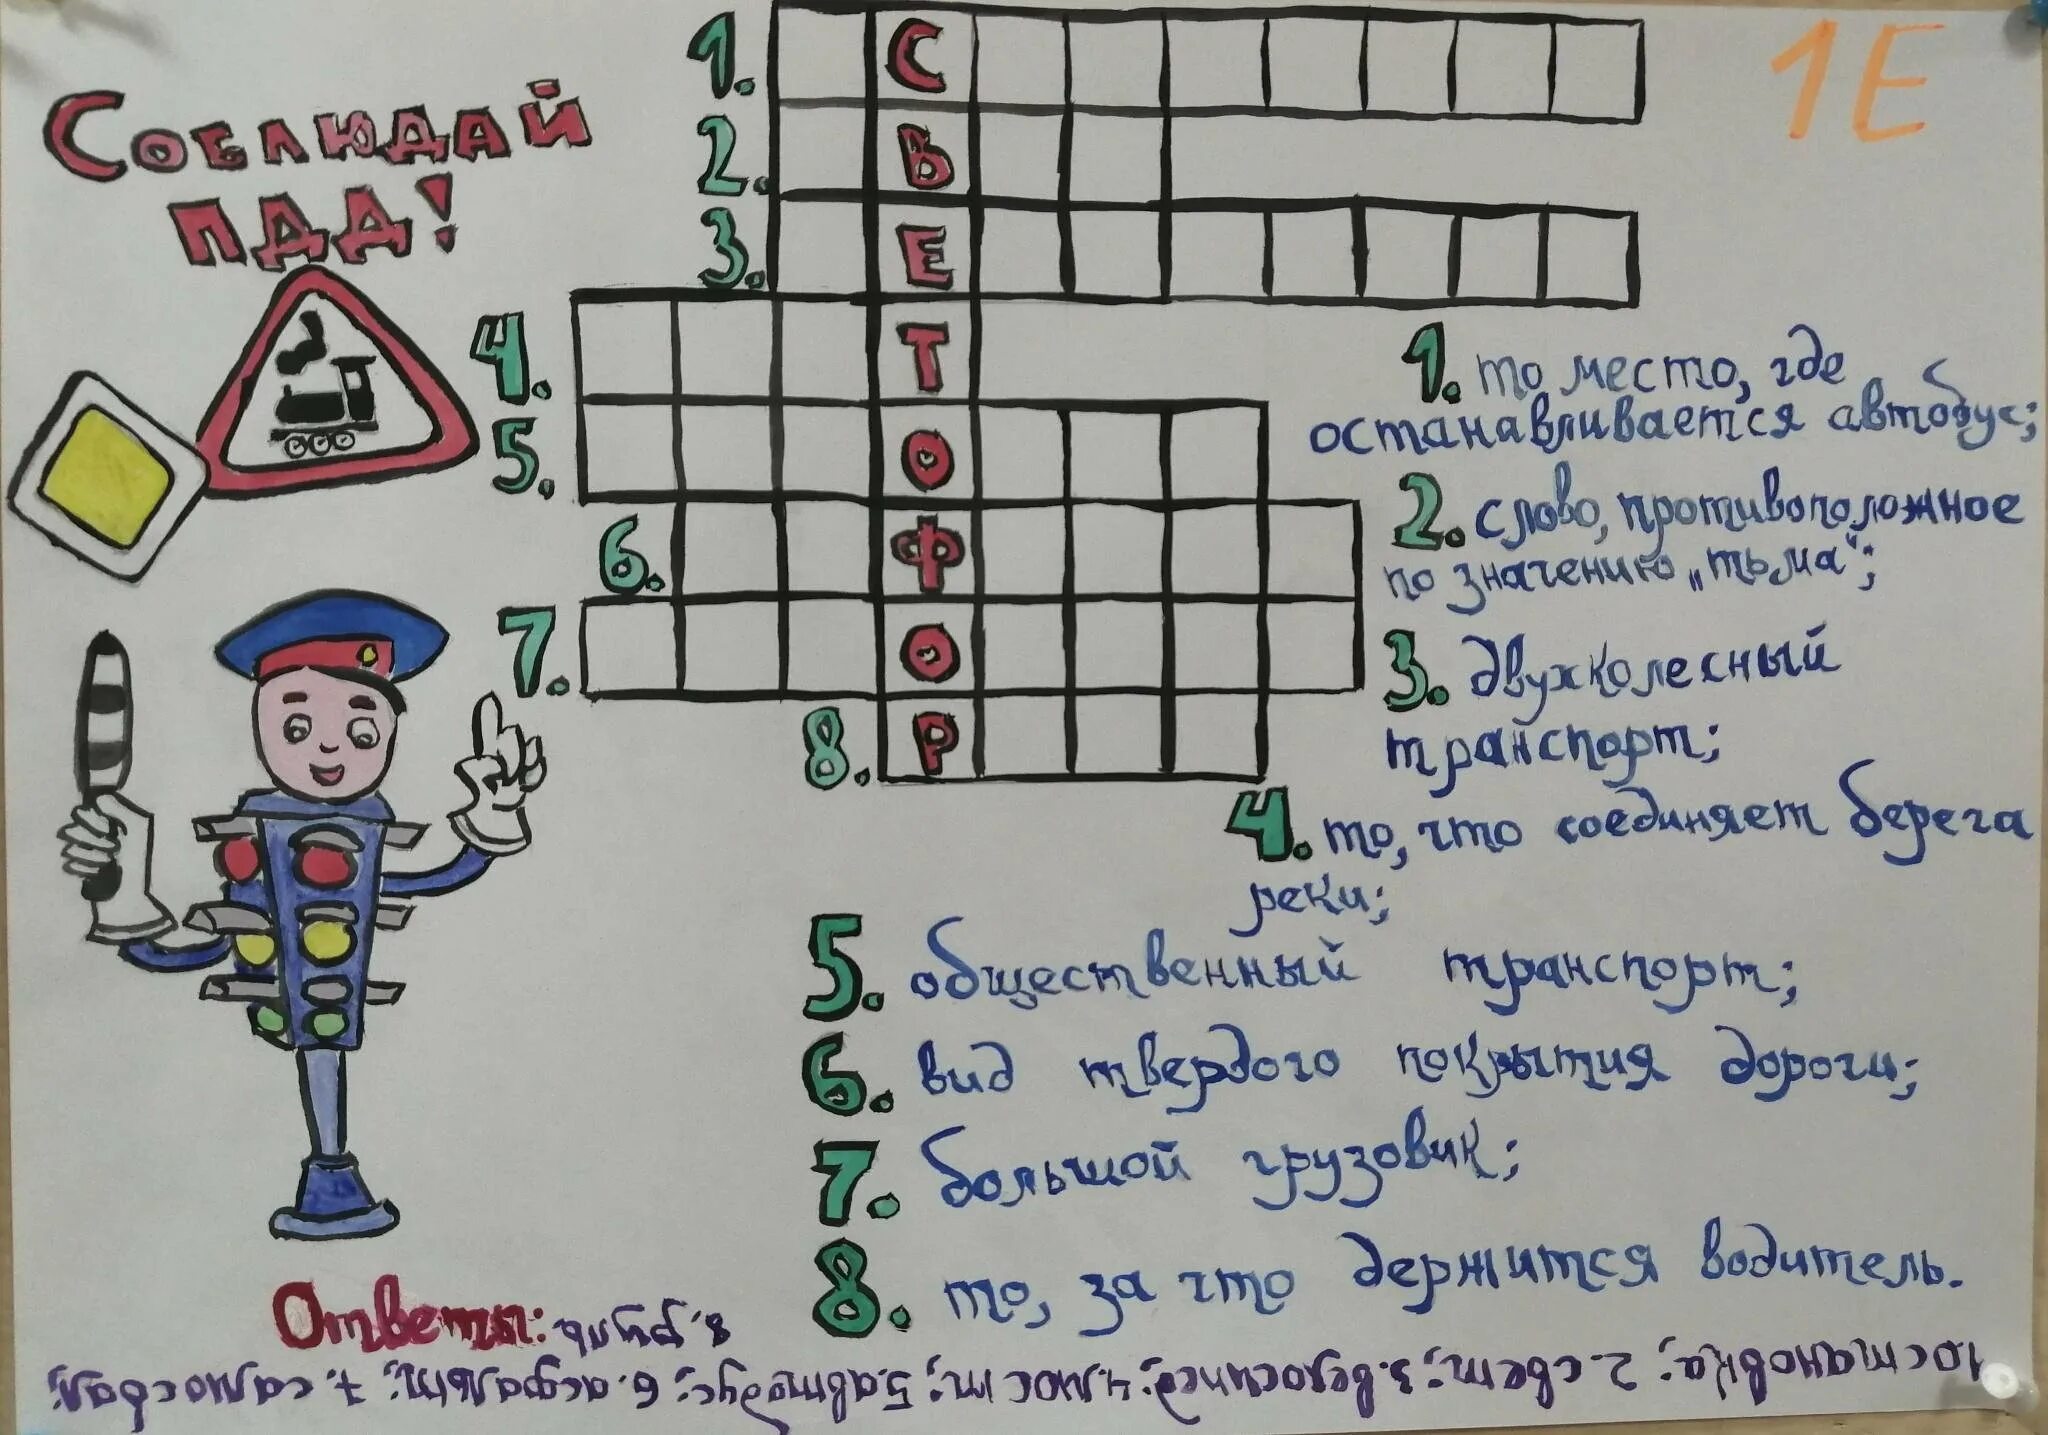 1Е
Соблюдай
ПДД!
1.
2.
3.
4.
5.
6.
7.
8.
С
В
Е
Т
О
Ф
О
Р
1. то место, где
останавливается автобус;
2. слово, противоположное
по значению „тьма“;
3. двухколесный
транспорт;
4. то, что соединяет берега
реки;
5. общественный транспорт;
6. вид твердого покрытия дороги;
7. большой грузовик;
8. то, за что держится водитель.
Ответы:
1. остановка; 2. свет; 3. велосипед; 4. мост; 5. автобус; 6. асфальт; 7. самосвал;
8. руль